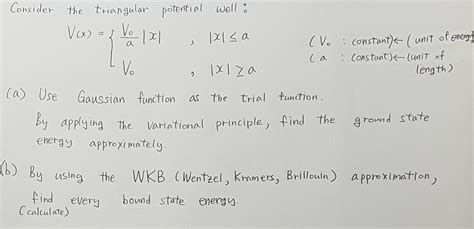 Consider the triangular potential well :
V(x) = { V₀/a |x| , |x| ≤ a
V₀ , |x| ≥ a
( V₀ : constant) ← ( unit of energy)
( a : constant) ← (unit of length)
(a) Use Gaussian function as the trial function.
By applying the variational principle, find the ground state
energy approximately.
(b) By using the WKB (Wentzel, Kramers, Brillouin) approximation,
find every bound state energy.
(calculate)